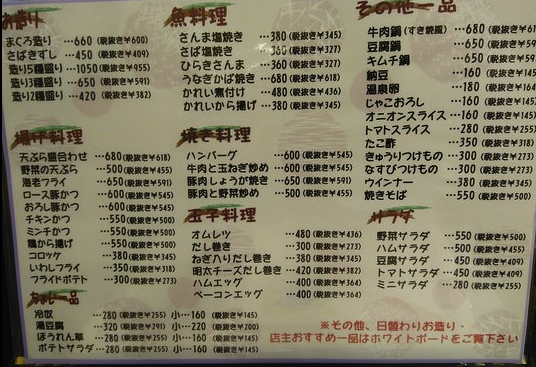 お造り
まぐろ造り …660 (税抜き¥600)
さばきずし …450 (税抜き¥409)
造り5種盛り …1050 (税抜き¥955)
造り3種盛り …650 (税抜き¥591)
造り2種盛り …420 (税抜き¥382)
揚げ料理
天ぷら盛合わせ …680 (税抜き¥618)
野菜の天ぷら …500 (税抜き¥455)
海老フライ …650 (税抜き¥591)
ロース豚かつ …600 (税抜き¥545)
おろし豚かつ …600 (税抜き¥545)
チキンかつ …550 (税抜き¥500)
ミンチかつ …550 (税抜き¥500)
鶏から揚げ …550 (税抜き¥500)
コロッケ …380 (税抜き¥345)
いわしフライ …350 (税抜き¥318)
フライドポテト …300 (税抜き¥273)
一品
冷奴 …280 (税抜き¥255) 小…160 (税抜き¥145)
湯豆腐 …320 (税抜き¥291) 小…220 (税抜き¥200)
ほうれん草 …280 (税抜き¥255) 小…160 (税抜き¥145)
ポテトサラダ …280 (税抜き¥255) 小…160 (税抜き¥145)
魚料理
さんま塩焼き …380 (税抜き¥345)
さば塩焼き …360 (税抜き¥327)
ひらきさんま …360 (税抜き¥327)
うなぎかば焼き …680 (税抜き¥618)
かれい煮付け …480 (税抜き¥436)
かれいから揚げ …380 (税抜き¥345)
焼き料理
ハンバーグ …600 (税抜き¥545)
牛肉と玉ねぎ炒め …600 (税抜き¥545)
豚肉しょうが焼き …650 (税抜き¥591)
豚肉と野菜炒め …500 (税抜き¥455)
玉子料理
オムレツ …480 (税抜き¥436)
だし巻き …300 (税抜き¥273)
ねぎ入りだし巻き …380 (税抜き¥345)
明太チーズだし巻き …420 (税抜き¥382)
ハムエッグ …400 (税抜き¥364)
ベーコンエッグ …400 (税抜き¥364)
その他一品
牛肉鍋 (すき焼風) …680 (税抜き
豆腐鍋 …650 (税抜き¥59
キムチ鍋 …650 (税抜き¥591
納豆 …160 (税抜き¥145
温泉卵 …180 (税抜き¥164
じゃこおろし …160 (税抜き¥145
オニオンスライス …160 (税抜き¥145)
トマトスライス …280 (税抜き¥255)
たこ酢 …350 (税抜き¥318)
きゅうりつけもの …300 (税抜き¥273)
なすびつけもの …300 (税抜き¥273)
ウインナー …380 (税抜き¥345)
焼きそば …550 (税抜き¥500)
サラダ
野菜サラダ …550 (税抜き¥500)
ハムサラダ …500 (税抜き¥455)
豆腐サラダ …450 (税抜き¥409)
トマトサラダ …450 (税抜き¥409)
ミニサラダ …280 (税抜き¥255)
※その他、日替わりお造り・
店主おすすめ一品はホワイトボードをご覧下さい